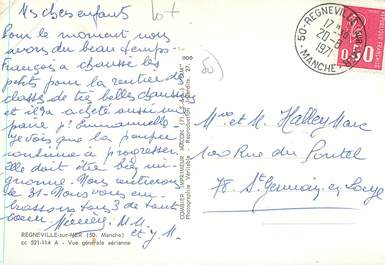 Mes chers enfants
Pour le moment nous
avons du beau temps
François a chaussé les
petits pour la rentrée de
classes de très belles chaussures
et il a acheté aussi une
paire pr Emmanuelle
Je vois que la poupée
continue à progresser
elle doit être bien mi-
gnonne. Nous rentrerons
le 31. Nous vous em-
brassons tous 3 de tout
coeur
et J. M.
REGNEVILLE-sur-MER (50. Manche)
CC 521-114 A - Vue générale aérienne
COMBIER IMPRIMEUR MACON (71)
Photographie Véritable - Reproduction Interdite
50-REGNEVILLE-SUR-MER
17 H
20-8
1971
MANCHE
0,50
Mme et M. Halley Marc
100 Rue du Pontel
78. St Germain en Laye